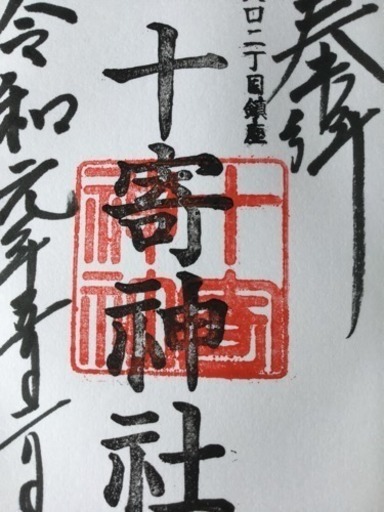 奉拝
口二丁目鎮座
十寄神社
十寄神社
令和元年五月二日